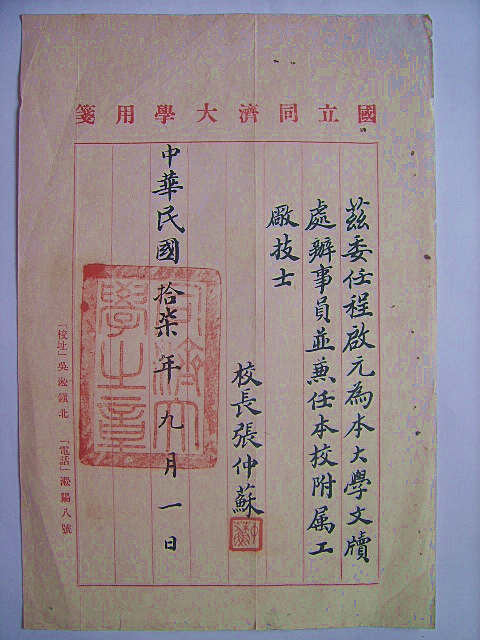 國立同濟大學用箋
茲委任程啟元為本大學文牘
處辦事員並兼任本校附属工
廠技士
校長張仲蘇
中華民國拾柒年九月一日
同濟大
學之章
「校址」吳淞鎮北 「電話」淞陽八號